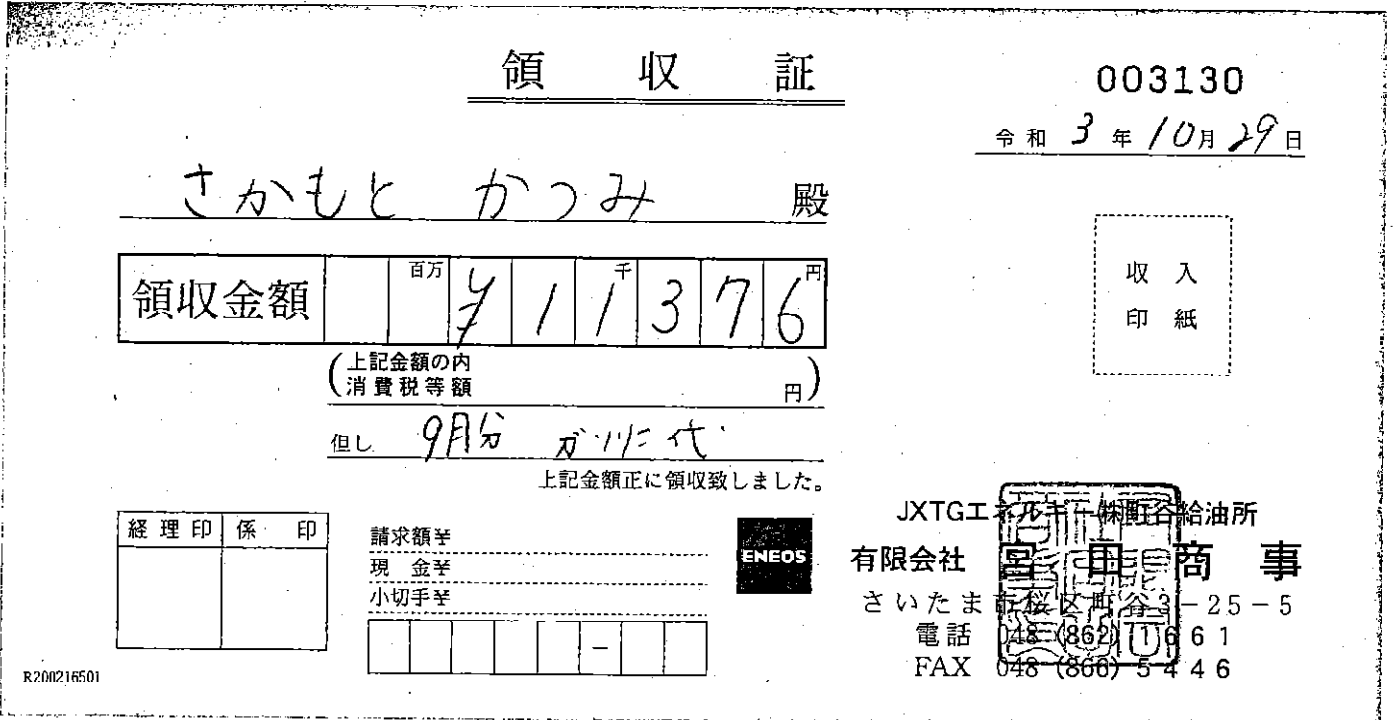 領収証
003130
令和 3 年 10 月 29 日
さかもと かつみ 殿
領収金額 百万 千 円
¥11376
(上記金額の内
消費税等額 円)
但し 9月分 ガソリン代
上記金額正に領収致しました。
収入
印紙
経理印 係印
請求額¥
現金¥
小切手¥
ー
ENEOS
JXTGエネルギー㈱町谷給油所
有限会社 宮田商事
さいたま市桜区町谷3-25-5
電話 048 (862) 1661
FAX 048 (866) 5446
R200216501